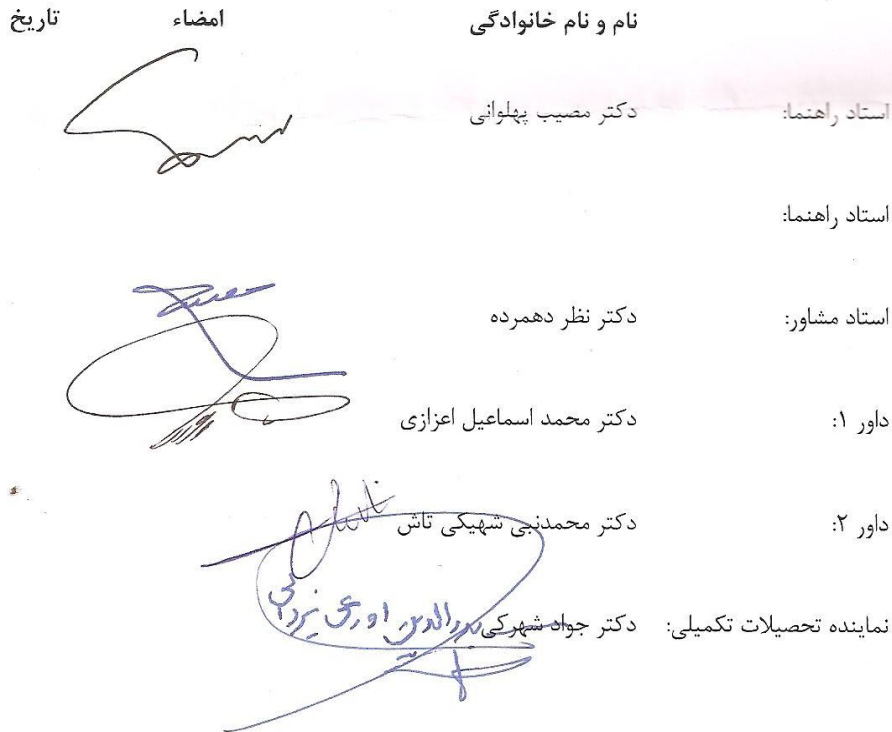 نام و نام خانوادگی امضاء تاریخ
استاد راهنما: دکتر مصیب پهلوانی
استاد راهنما:
استاد مشاور: دکتر نظر دهمرده
داور ۱: دکتر محمد اسماعیل اعزازی
داور ۲: دکتر محمدنبی شهیکی تاش
نماینده تحصیلات تکمیلی: دکتر جواد شهرکی بدرالدین اورعی یزدانی